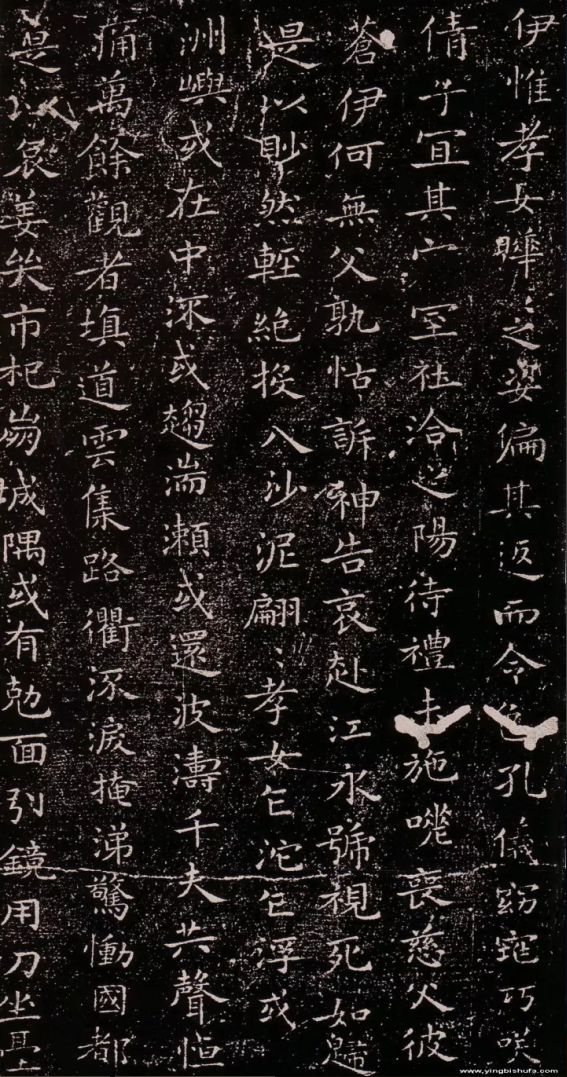 伊惟孝女曄〻之姿偏其返而令色孔儀窈窕巧咲
倩兮冝其家室在洽之陽待禮未施嗟喪慈父彼
蒼伊何無父孰怙訴神告哀赴江永號視死如歸
是以眇然輕絶投入沙泥翩〻孝女乍沈乍浮或
洲嶼或在中流或趨湍瀨或還波濤千夫失聲悼
痛萬餘觀者填道雲集路衢流淚掩涕驚慟國都
是以哀姜哭市杞崩城隅或有剋面引鏡用刀坐臺
www.yingbishufa.com